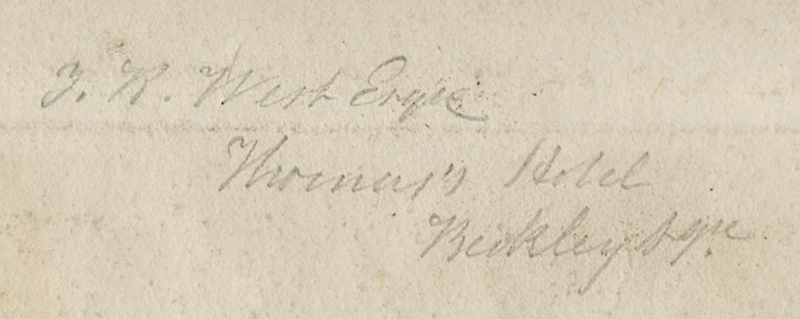 F. R. West Esqre
Thomas's Hotel
Berkley Sqre